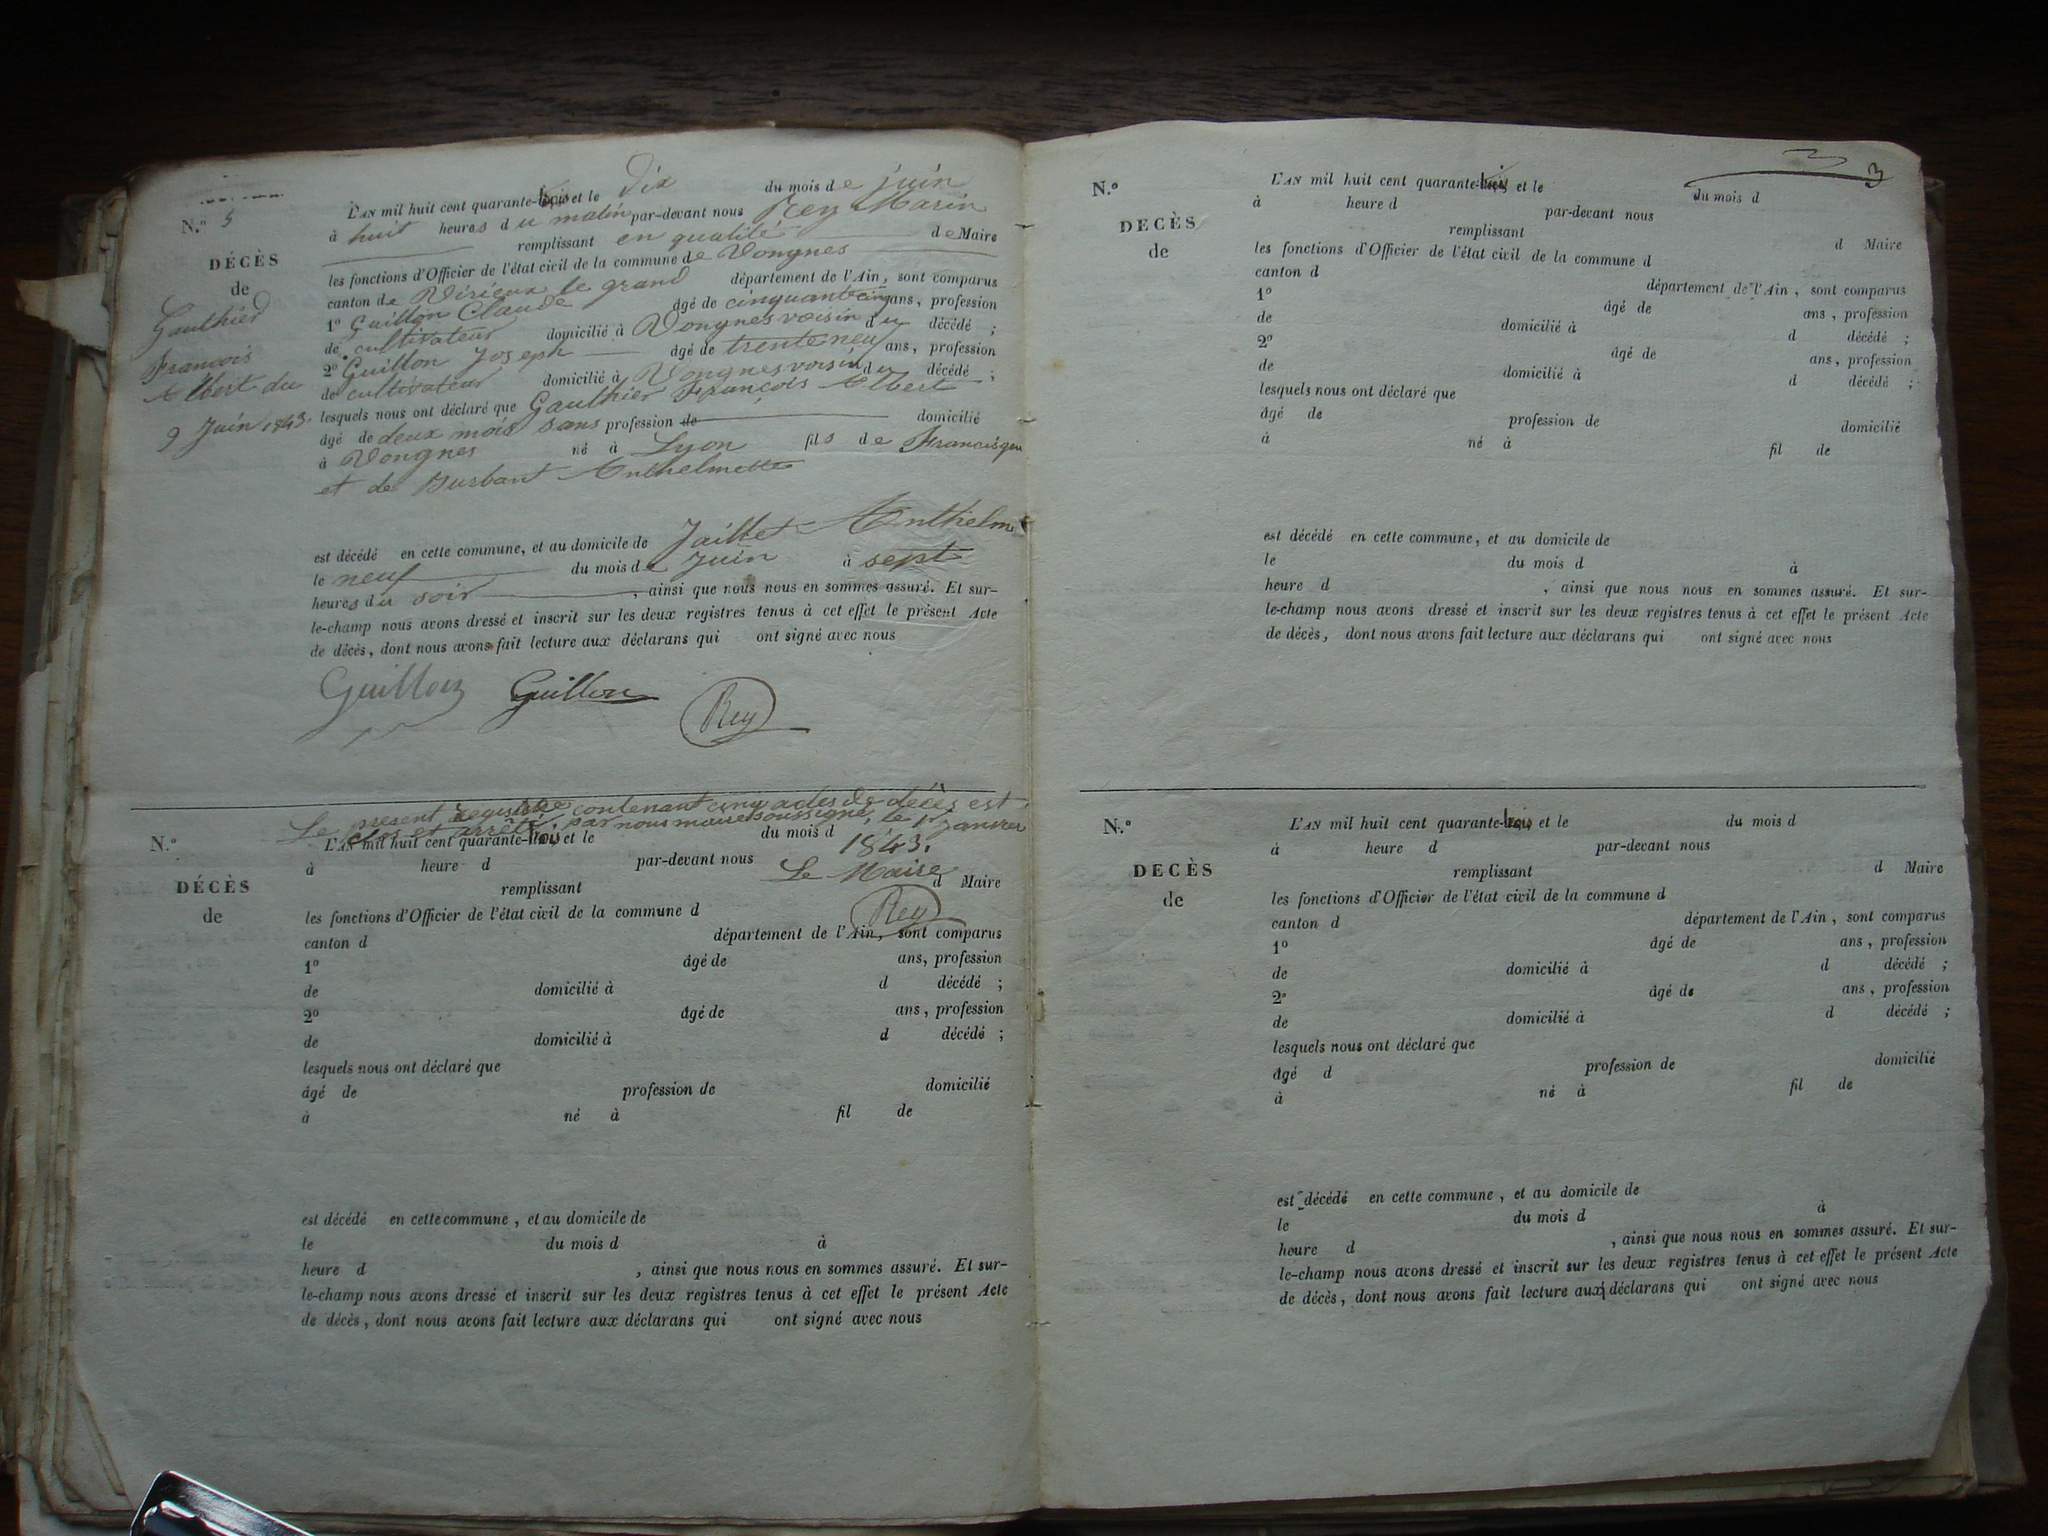 N.º 5
DÉCÈS
de
Gauthier
François
Albert du
9 Juin 1843.
L'AN mil huit cent quarante-trois et le Dix du mois de juin
à huit heures du matin par-devant nous Rey Marin
remplissant en qualité de Maire
les fonctions d'Officier de l'état civil de la commune de Vongnes
canton de Virieux le grand département de l'Ain, sont comparus
1º Guillon Claude âgé de cinquante cinq ans, profession
de cultivateur domicilié à Vongnes voisin du décédé ;
2º Guillon Joseph âgé de trente neuf ans, profession
de cultivateur domicilié à Vongnes voisin du décédé ;
lesquels nous ont déclaré que Gauthier François Albert
âgé de deux mois sans profession de domicilié
à Vongnes né à Lyon fils de Francisque
et de Burbant Anthelmette
est décédé en cette commune, et au domicile de Jaillet Anthelme
le neuf du mois de Juin à sept
heures du soir , ainsi que nous nous en sommes assuré. Et sur-
le-champ nous avons dressé et inscrit sur les deux registres tenus à cet effet le présent Acte
de décès, dont nous avons fait lecture aux déclarans qui ont signé avec nous
Guillon Guillon Rey
Le présent registre contenant cinq actes de décès est
clos et arrêté par nous maire soussigné, le 1r janvier
1843.
Le Maire
Rey
N.º
DÉCÈS
de
L'AN mil huit cent quarante-trois et le du mois d
à heure d par-devant nous
remplissant d Maire
les fonctions d'Officier de l'état civil de la commune d
canton d département de l'Ain, sont comparus
1º âgé de ans, profession
de domicilié à d décédé ;
2º âgé de ans, profession
de domicilié à d décédé ;
lesquels nous ont déclaré que
âgé de profession de domicilié
à né à fil de
est décédé en cette commune, et au domicile de
le du mois d à
heure d , ainsi que nous nous en sommes assuré. Et sur-
le-champ nous avons dressé et inscrit sur les deux registres tenus à cet effet le présent Acte
de décès, dont nous avons fait lecture aux déclarans qui ont signé avec nous
3
N.º
DECÈS
de
L'AN mil huit cent quarante-trois et le du mois d
à heure d par-devant nous
remplissant d Maire
les fonctions d'Officier de l'état civil de la commune d
canton d département de l'Ain, sont comparus
1º âgé de ans, profession
de domicilié à d décédé ;
2º âgé de ans, profession
de domicilié à d décédé ;
lesquels nous ont déclaré que
âgé de profession de domicilié
à né à fil de
est décédé en cette commune, et au domicile de
le du mois d à
heure d , ainsi que nous nous en sommes assuré. Et sur-
le-champ nous avons dressé et inscrit sur les deux registres tenus à cet effet le présent Acte
de décès, dont nous avons fait lecture aux déclarans qui ont signé avec nous
N.º
DECÈS
de
L'AN mil huit cent quarante-trois et le du mois d
à heure d par-devant nous
remplissant d Maire
les fonctions d'Officier de l'état civil de la commune d
canton d département de l'Ain, sont comparus
1º âgé de ans, profession
de domicilié à d décédé ;
2º âgé de ans, profession
de domicilié à d décédé ;
lesquels nous ont déclaré que
âgé d profession de domicilié
à né à fil de
est décédé en cette commune, et au domicile de
le du mois d à
heure d , ainsi que nous nous en sommes assuré. Et sur-
le-champ nous avons dressé et inscrit sur les deux registres tenus à cet effet le présent Acte
de décès, dont nous avons fait lecture aux déclarans qui ont signé avec nous